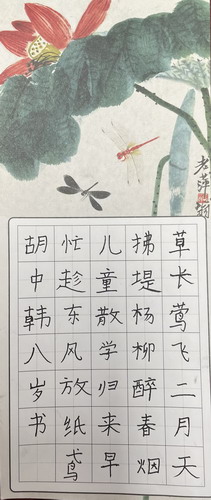 草长莺飞二月天
拂堤杨柳醉春烟
儿童散学归来早
忙趁东风放纸鸢
胡中韩八岁书
老萍